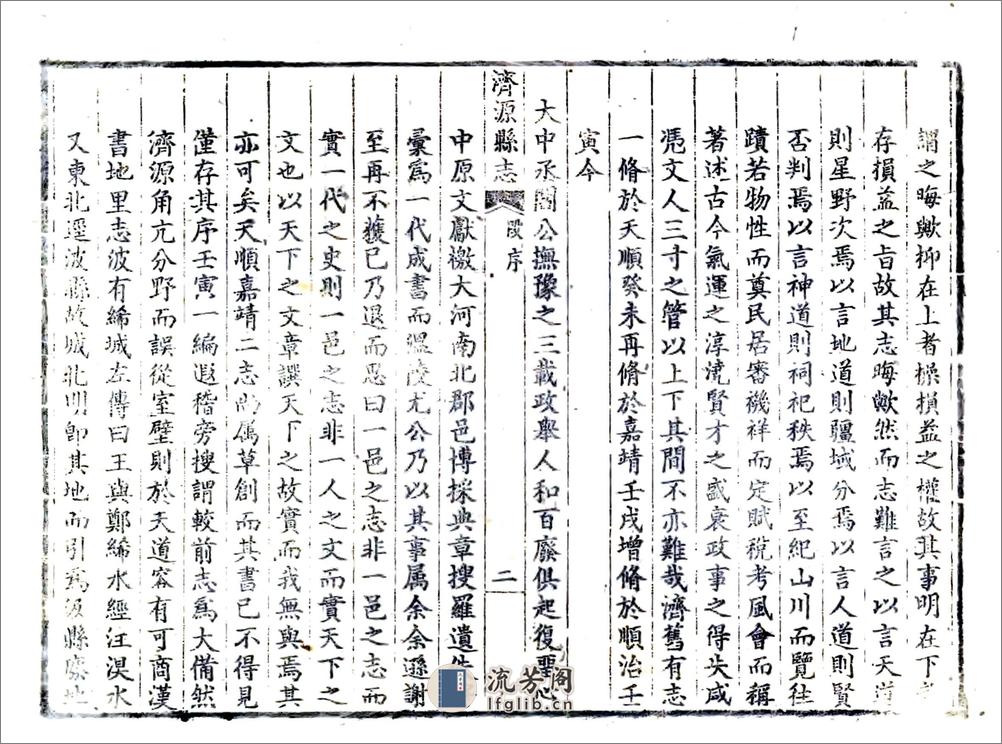 謂之晦歟抑在上者操損益之權故其事明在下者
存損益之旨故其志晦歟然而志難言之以言天道
則星野次焉以言地道則疆域分焉以言人道則賢
否判焉以言神道則祠祀秩焉以至紀山川而覽徃
蹟若物性而奠民居審禨祥而定賦稅考風會而稱
著述古今氣運之淳澆賢才之盛衰政事之得失咸
凴文人三寸之管以上下其間不亦難哉濟舊有志
一脩於天順癸未再脩於嘉靖壬戌增脩於順治壬
寅今
大中丞閻公撫豫之三載政舉人和百廢俱起復聖心
濟源縣志
段序
二
中原文獻檄大河南北郡邑博採典章搜羅遺佚
彚爲一代成書而溫陵尤公乃以其事属余余遜謝
至再不獲已乃退而思曰一邑之志非一邑之志而
實一代之史則一邑之志非一人之文而實天下之
文也以天下之文章譔天下之故實而我無與焉其
亦可矣天順嘉靖二志尚属草創而其書已不得見
僅存其序壬寅一編遐稽旁搜謂較前志爲大備然
濟源角亢分野而誤從室壁則於天道容有可商漢
書地里志波有絺城左傳曰王與鄭絺水經注湨水
又東北逕波縣故城北明卽其地而引爲汲縣廢地
流芳阁
lfglib.cn